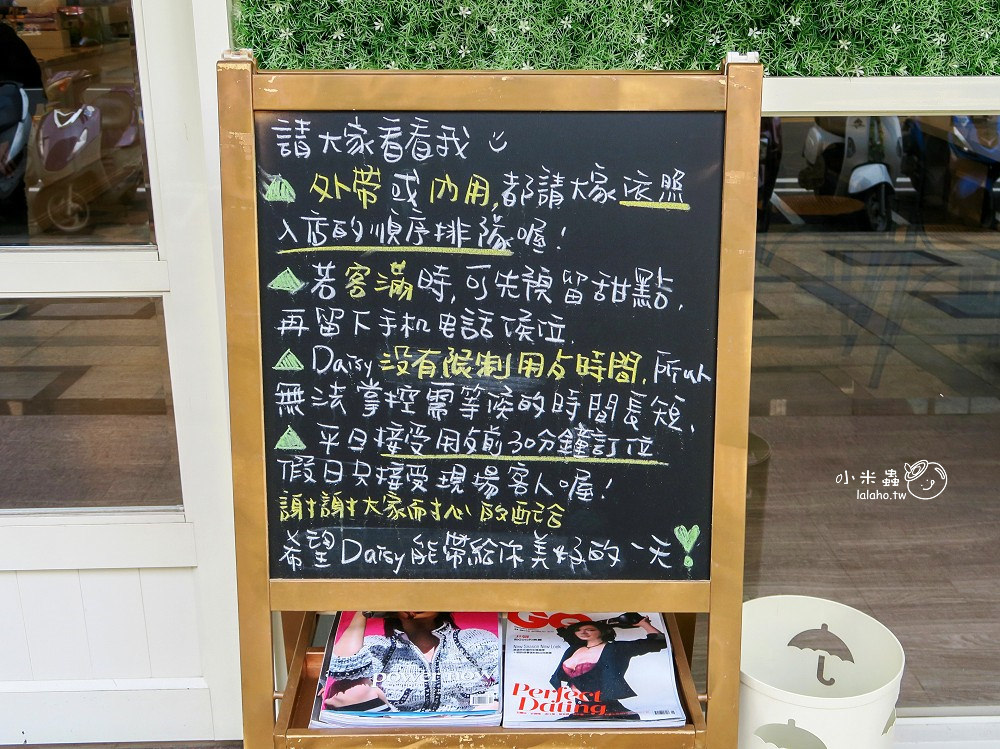 請大家看看我
外帶或內用,都請大家依照
入店的順序排隊喔!
若客滿時,可先預留甜點,
再留下手机电話候位.
Daisy沒有限制用歺時間,所以
無法掌控需等候的時間長短,
平日接受用歺前30分鐘訂位
假日只接受現場客人喔!
謝謝大家耐心的配合
希望Daisy能帶給你美好的一天
小米蟲
lalaho.tw
GQ
powermom
New Season New Look
Perfect
Dating